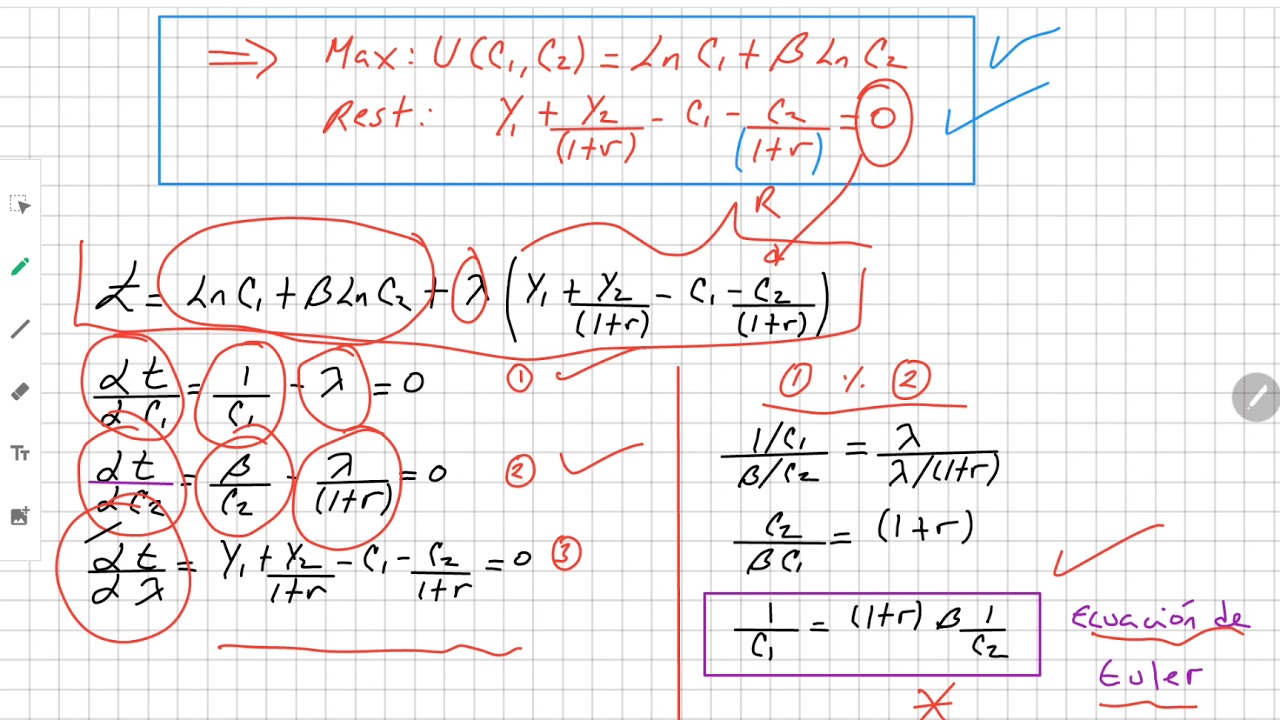 ⟹ Max: U(C₁, C₂) = Ln C₁ + β Ln C₂
Rest: Y₁ + Y₂/(1+r) - C₁ - C₂/(1+r) = 0
R
ℒ = Ln C₁ + β Ln C₂ + λ (Y₁ + Y₂/(1+r) - C₁ - C₂/(1+r))
∂ℒ/∂C₁ = 1/C₁ - λ = 0 ①
∂ℒ/∂C₂ = β/C₂ - λ/(1+r) = 0 ②
∂ℒ/∂λ = Y₁ + Y₂/1+r - C₁ - C₂/1+r = 0 ③
① ٪ ②
1/C₁ / β/C₂ = λ / λ/(1+r)
C₂/βC₁ = (1+r)
1/C₁ = (1+r) β 1/C₂
Ecuación de
Euler
Tт